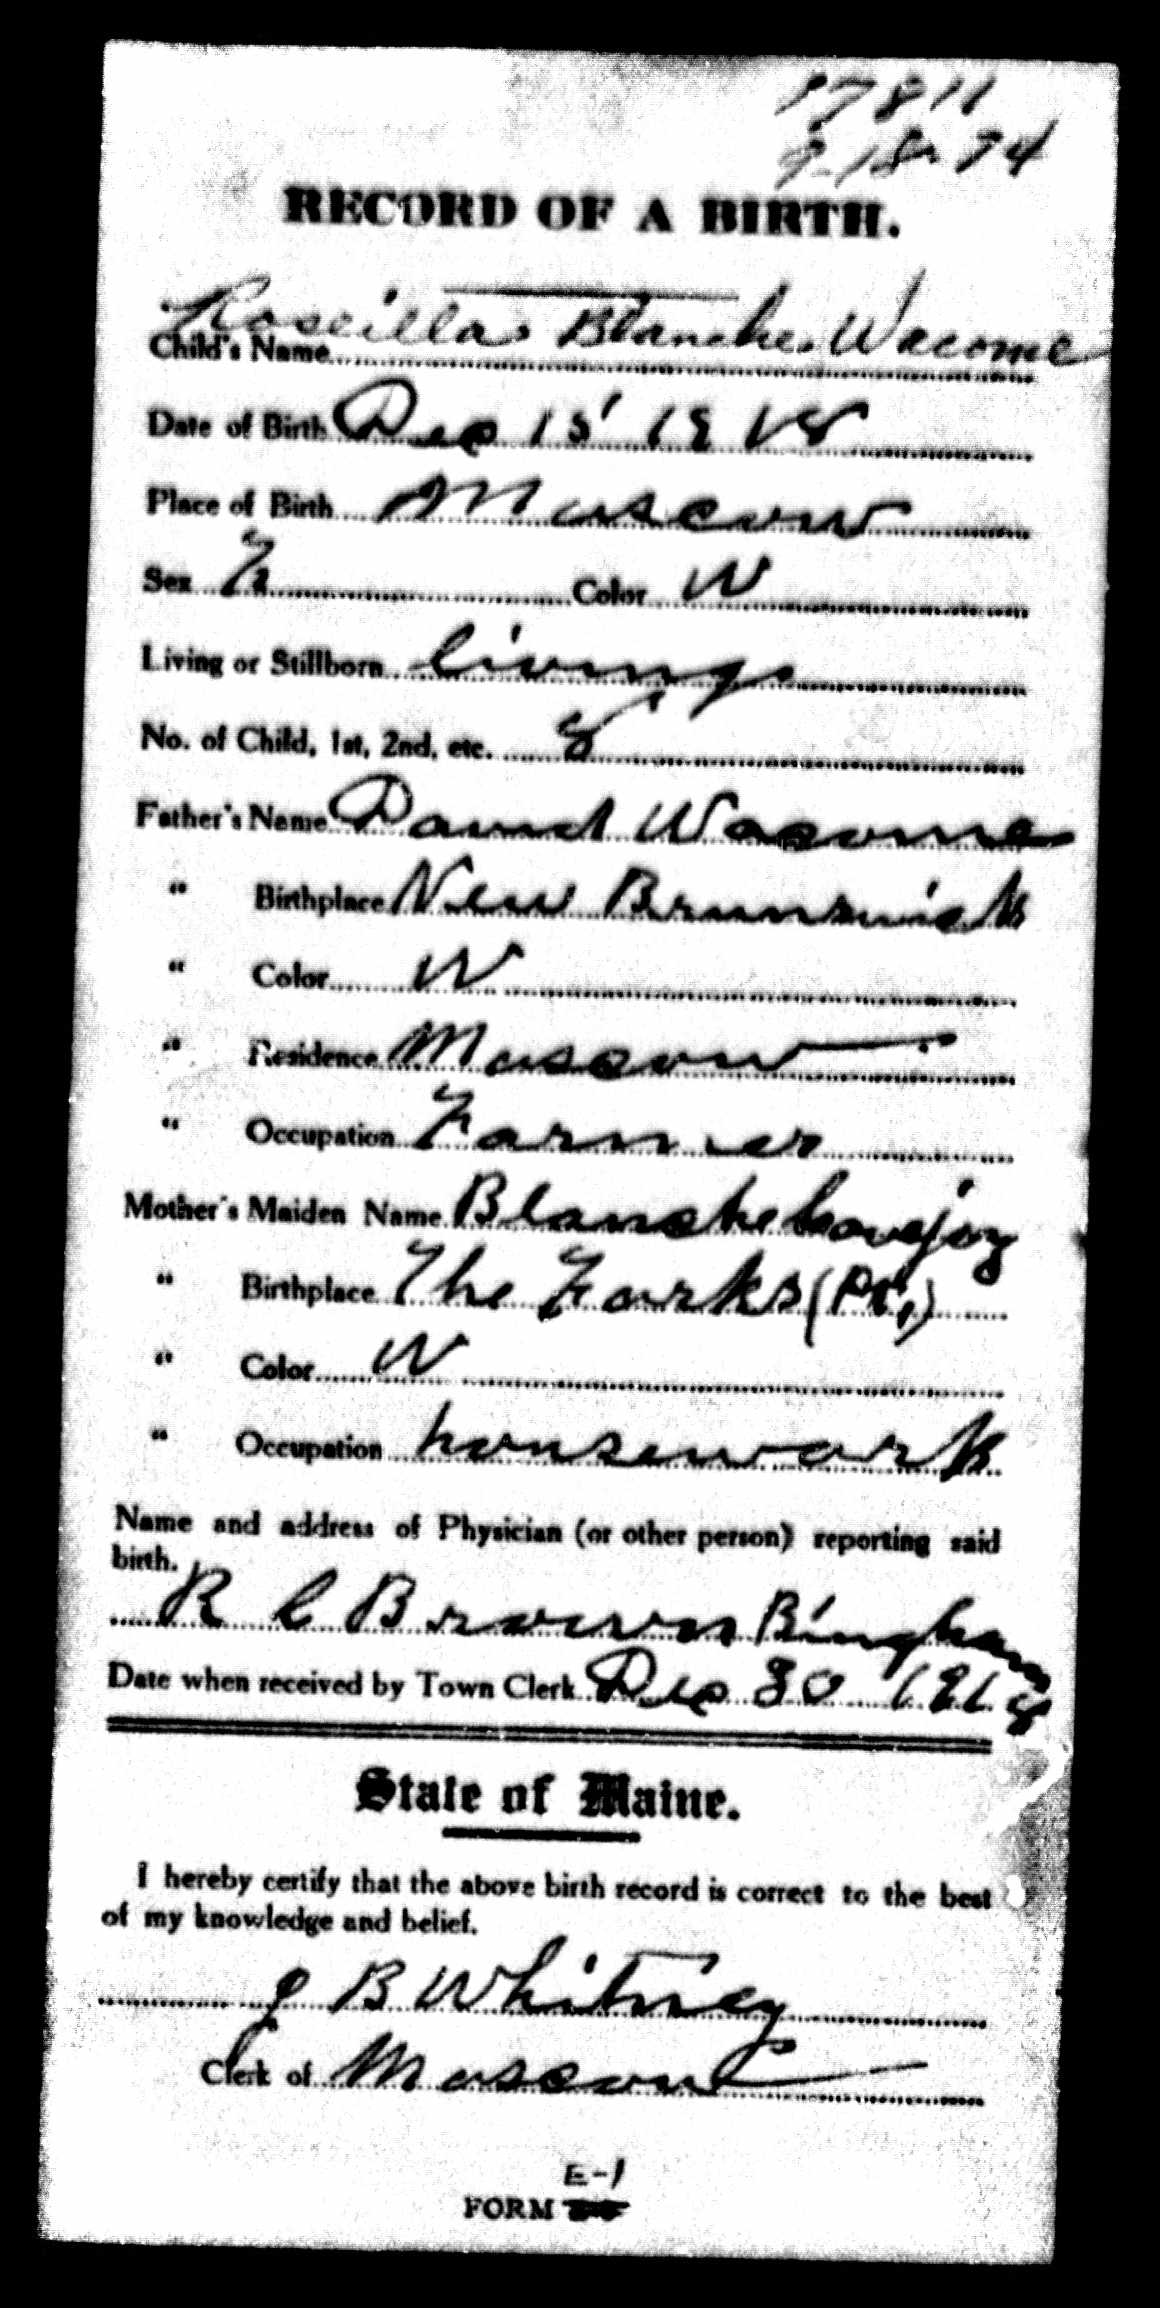 17811
9-18-74
RECORD OF A BIRTH.
Child's Name Roscilla Blanche Wacome
Date of Birth Dec 15 1918
Place of Birth Moscow
Sex F Color W
Living or Stillborn living
No. of Child, 1st, 2nd, etc. 8
Father's Name David Wacome
" Birthplace New Brunswick
" Color W
" Residence Moscow
" Occupation Farmer
Mother's Maiden Name Blanche Lovejoy
" Birthplace The Forks (Pt.)
" Color W
" Occupation housework
Name and address of Physician (or other person) reporting said
birth.
R C Brown Bingham
Date when received by Town Clerk Dec 30 1918
State of Maine.
I hereby certify that the above birth record is correct to the best
of my knowledge and belief.
J B Whitney
Clerk of Moscow
E-1
FORM